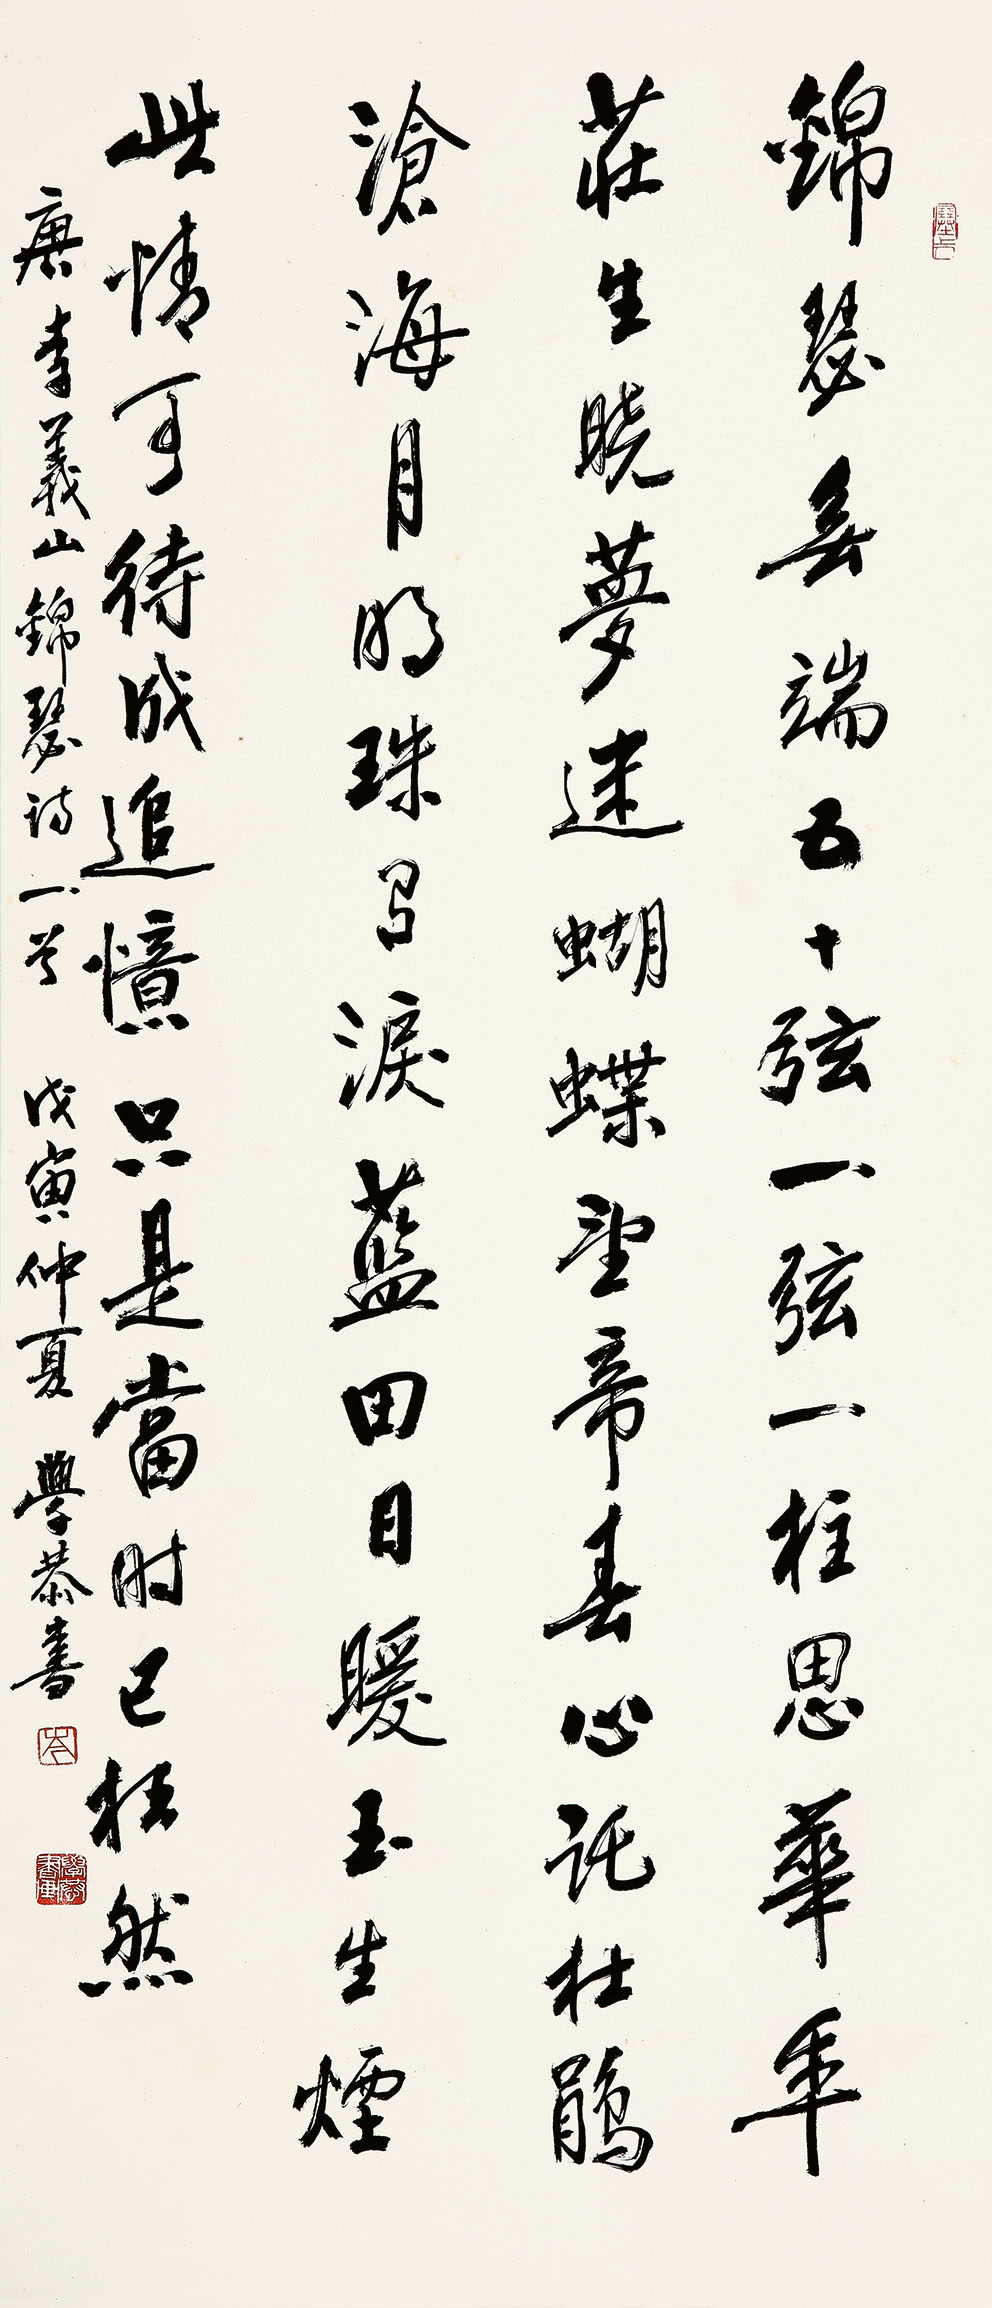 錦瑟無端五十弦一弦一柱思華年
莊生曉夢迷蝴蝶望帝春心託杜鵑
滄海月明珠有淚藍田日暖玉生煙
此情可待成追憶只是當时已枉然
唐李義山錦瑟詩一首 戊寅仲夏 學恭書